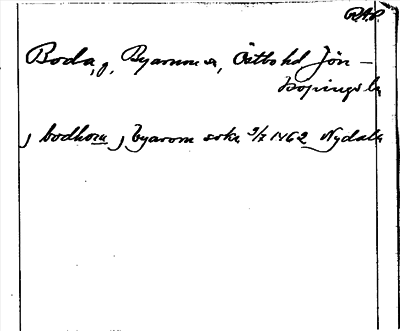 RAP.
Boda, g, Byarums sn, Östbo hd Jön-
köpings ln
j bodhom j byarom sokn 3/7 1462 Nydala